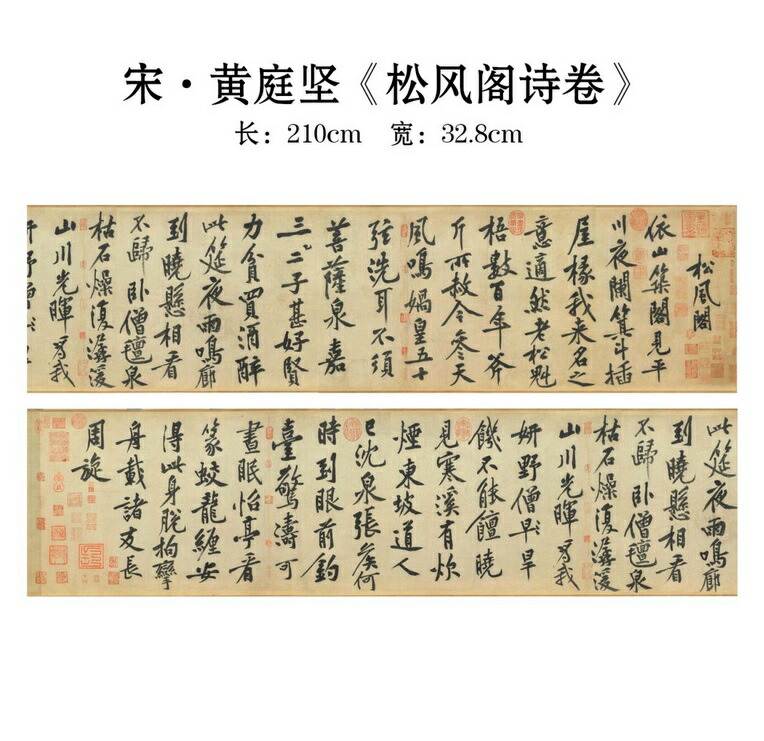 宋·黄庭坚《松风阁诗卷》
长：210cm 宽：32.8cm
松風閣
依山築閣見平
川夜闌箕斗插
屋椽我來名之
意適然老松魁
梧數百年斧
斤所赦今參天
風鳴媧皇五十
弦洗耳不須
菩薩泉嘉
三二子甚好賢
力貧買酒醉
此筵夜雨鳴廊
到曉懸相看
不歸卧僧氈泉
枯石燥復潺湲
山川光暉為我
此筵夜雨鳴廊
到曉懸相看
不歸卧僧氈泉
枯石燥復潺湲
山川光暉為我
妍野僧早旱
饑不能饘曉
見寒溪有炊
煙東坡道人
已沈泉張侯何
時到眼前釣
臺驚濤可
晝眠怡亭看
篆蛟龍纏安
得此身脫拘攣
舟載諸友長
周旋